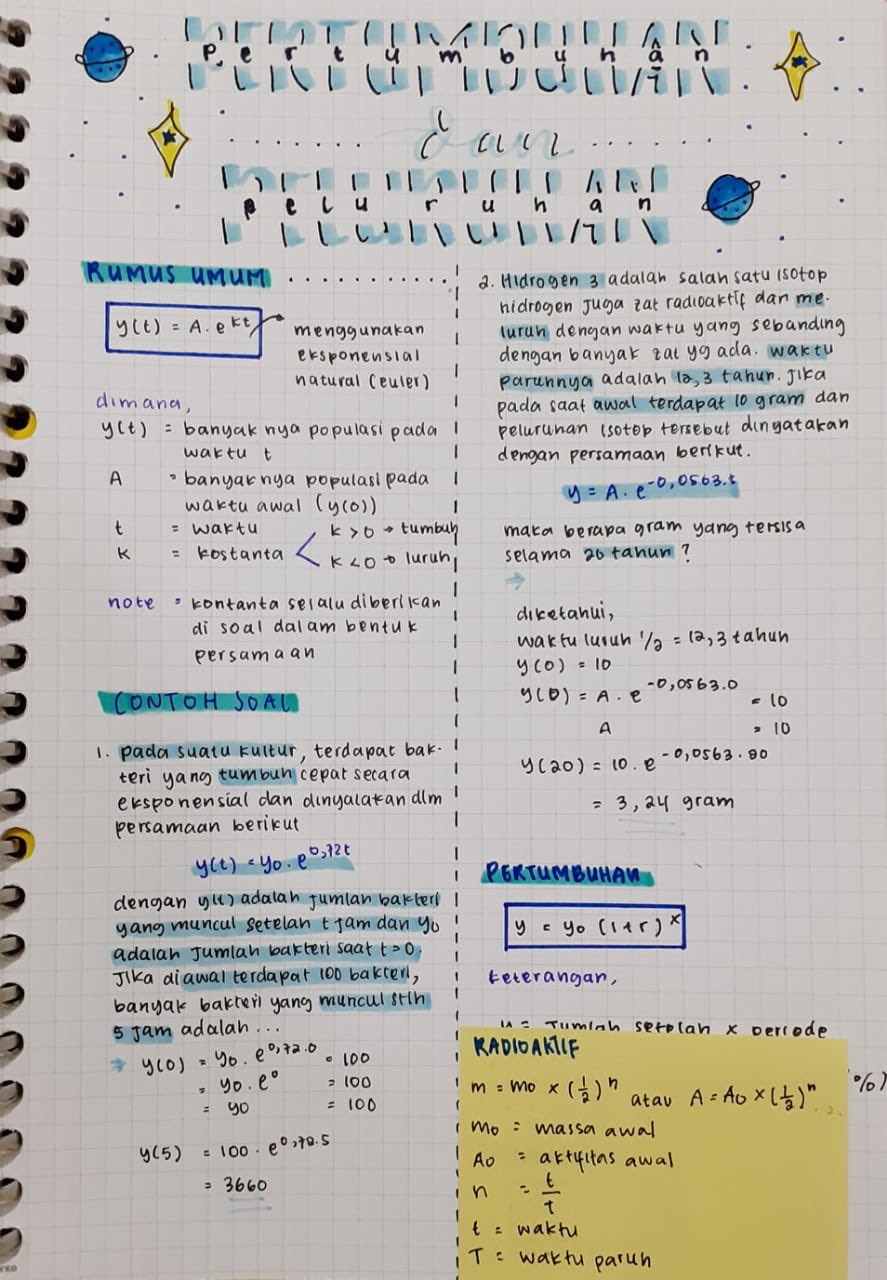 Pertumbuhan
dan
peluruhan
RUMUS UMUM ............
y(t) = A . e^kt → menggunakan
eksponensial
natural (euler)
dimana,
y(t) = banyak nya populasi pada
waktu t
A = banyaknya populasi pada
waktu awal (y(0))
t = waktu
k = kostanta < k > 0 → tumbuh
k < 0 → luruh
note = kontanta selalu diberikan
di soal dalam bentuk
persamaan
CONTOH SOAL
1. pada suatu kultur, terdapat bak-
teri yang tumbuh cepat secara
eksponensial dan dinyatakan dlm
persamaan berikut
y(t) = y0 . e^0,72t
dengan y(t) adalah jumlah bakteri
yang muncul setelah t jam dan y0
adalah jumlah bakteri saat t=0.
Jika diawal terdapat 100 bakteri,
banyak bakteri yang muncul stlh
5 jam adalah ...
→ y(0) = y0 . e^0,72.0 = 100
= y0 . e^0 = 100
= y0 = 100
y(5) = 100 . e^0,72.5
= 3660
2. Hidrogen 3 adalah salah satu isotop
hidrogen juga zat radioaktif dan me-
luruh dengan waktu yang sebanding
dengan banyak zat yg ada. waktu
paruhnya adalah 12,3 tahun. Jika
pada saat awal terdapat 10 gram dan
peluruhan isotop tersebut dinyatakan
dengan persamaan berikut.
y = A . e^-0,0563.t
maka berapa gram yang tersisa
selama 20 tahun ?
→
diketahui,
waktu luruh 1/2 = 12,3 tahun
y(0) = 10
y(0) = A . e^-0,0563.0 = 10
A = 10
y(20) = 10 . e^-0,0563.20
= 3,24 gram
PERTUMBUHAN
y = y0 (1+r)^x
keterangan,
y = Jumlah setelah x periode
%)
RADIOAKTIF
m = m0 × (1/2)^n atau A = A0 × (1/2)^n
m0 = massa awal
A0 = aktifitas awal
n = t/T
t = waktu
T = waktu paruh